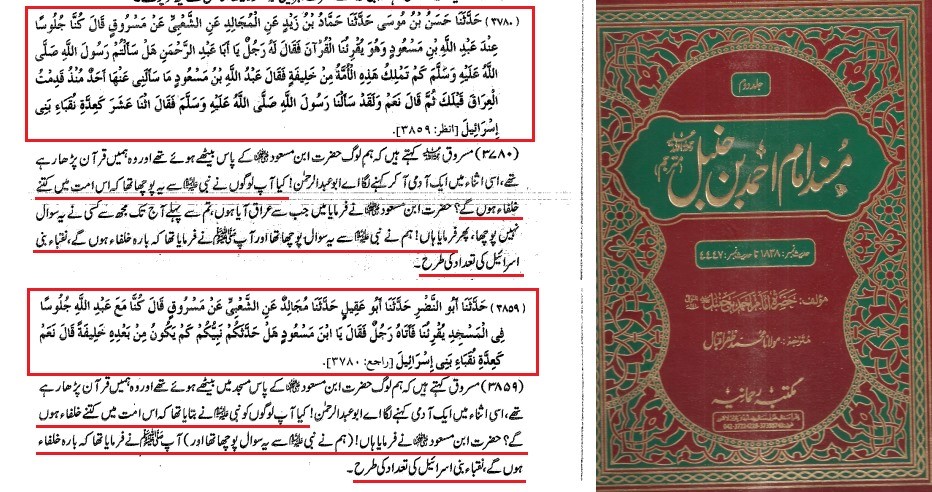 (٣٧٨٠) حَدَّثَنَا حَسَنُ بْنُ مُوسَى حَدَّثَنَا حَمَّادُ بْنُ زَيْدٍ عَنِ الْمُجَالِدِ عَنِ الشَّعْبِيِّ عَنْ مَسْرُوقٍ قَالَ كُنَّا جُلُوسًا
عِنْدَ عَبْدِ اللَّهِ بْنِ مَسْعُودٍ وَهُوَ يُقْرِئُنَا الْقُرْآنَ فَقَالَ لَهُ رَجُلٌ يَا أَبَا عَبْدِ الرَّحْمَنِ هَلْ سَأَلْتُمْ رَسُولَ اللَّهِ صَلَّى
اللَّهُ عَلَيْهِ وَسَلَّمَ كَمْ تَمْلِكُ هَذِهِ الْأُمَّةُ مِنْ خَلِيفَةٍ فَقَالَ عَبْدُ اللَّهِ بْنُ مَسْعُودٍ مَا سَأَلَنِي عَنْهَا أَحَدٌ مُنْذُ قَدِمْتُ
الْعِرَاقَ قَبْلَكَ ثُمَّ قَالَ نَعَمْ وَلَقَدْ سَأَلْنَا رَسُولَ اللَّهِ صَلَّى اللَّهُ عَلَيْهِ وَسَلَّمَ فَقَالَ اثْنَا عَشَرَ كَعِدَّةِ نُقَبَاءِ بَنِي
إِسْرَائِيلَ [انظر: ٣٨٥٩].
(٣٧٨٠) مسروق کہتے ہیں کہ ہم لوگ حضرت ابن مسعود کے پاس بیٹھے ہوئے تھے اور وہ ہمیں قرآن پڑھا رہے
تھے، اسی اثناء میں ایک آدمی آ کر کہنے لگا اے ابو عبدالرحمٰن! کیا آپ لوگوں نے نبی ﷺ سے یہ پوچھا تھا کہ اس امت میں کتنے
خلفاء ہوں گے؟ حضرت ابن مسعود نے فرمایا میں جب سے عراق آیا ہوں، تم سے پہلے آج تک مجھ سے کسی نے یہ سوال
نہیں پوچھا، پھر فرمایا ہاں! ہم نے نبی ﷺ سے یہ سوال پوچھا تھا اور آپ ﷺ نے فرمایا تھا کہ بارہ خلفاء ہوں گے، نقباء بنی
اسرائیل کی تعداد کی طرح۔
(٣٨٥٩) حَدَّثَنَا أَبُو النَّضْرِ حَدَّثَنَا أَبُو عَقِيلٍ حَدَّثَنَا مُجَالِدٌ عَنِ الشَّعْبِيِّ عَنْ مَسْرُوقٍ قَالَ كُنَّا مَعَ عَبْدِ اللَّهِ جُلُوسًا
فِي الْمَسْجِدِ يُقْرِئُنَا فَأَتَاهُ رَجُلٌ فَقَالَ يَا ابْنَ مَسْعُودٍ هَلْ حَدَّثَكُمْ نَبِيُّكُمْ كَمْ يَكُونُ مِنْ بَعْدِهِ خَلِيفَةً قَالَ نَعَمْ
كَعِدَّةِ نُقَبَاءِ بَنِي إِسْرَائِيلَ [راجع: ٣٧٨٠].
(٣٨٥٩) مسروق کہتے ہیں کہ ہم لوگ حضرت ابن مسعود کے پاس مسجد میں بیٹھے ہوئے تھے اور وہ ہمیں قرآن پڑھا رہے
تھے، اسی اثناء میں ایک آدمی کہنے لگا اے ابو عبدالرحمٰن! کیا آپ لوگوں کو نبی ﷺ نے بتایا تھا کہ اس امت میں کتنے خلفاء ہوں
گے؟ حضرت ابن مسعود نے فرمایا ہاں! (ہم نے نبی ﷺ سے یہ سوال پوچھا تھا اور) آپ ﷺ نے فرمایا تھا کہ بارہ خلفاء
ہوں گے، نقباء بنی اسرائیل کی تعداد کی طرح۔
جلد دوم
مسند امام احمد بن حنبل
(مترجم)
حدیث نمبر: ١٨٣٨ تا حدیث نمبر: ٤٤٤٧
مؤلف: حضرت امام احمد بن حنبل
مترجم: مولانا محمد ظفر اقبال
مکتبہ رحمانیہ